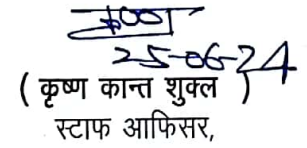 25-06-24
( कृष्ण कान्त शुक्ल )
स्टाफ आफिसर,